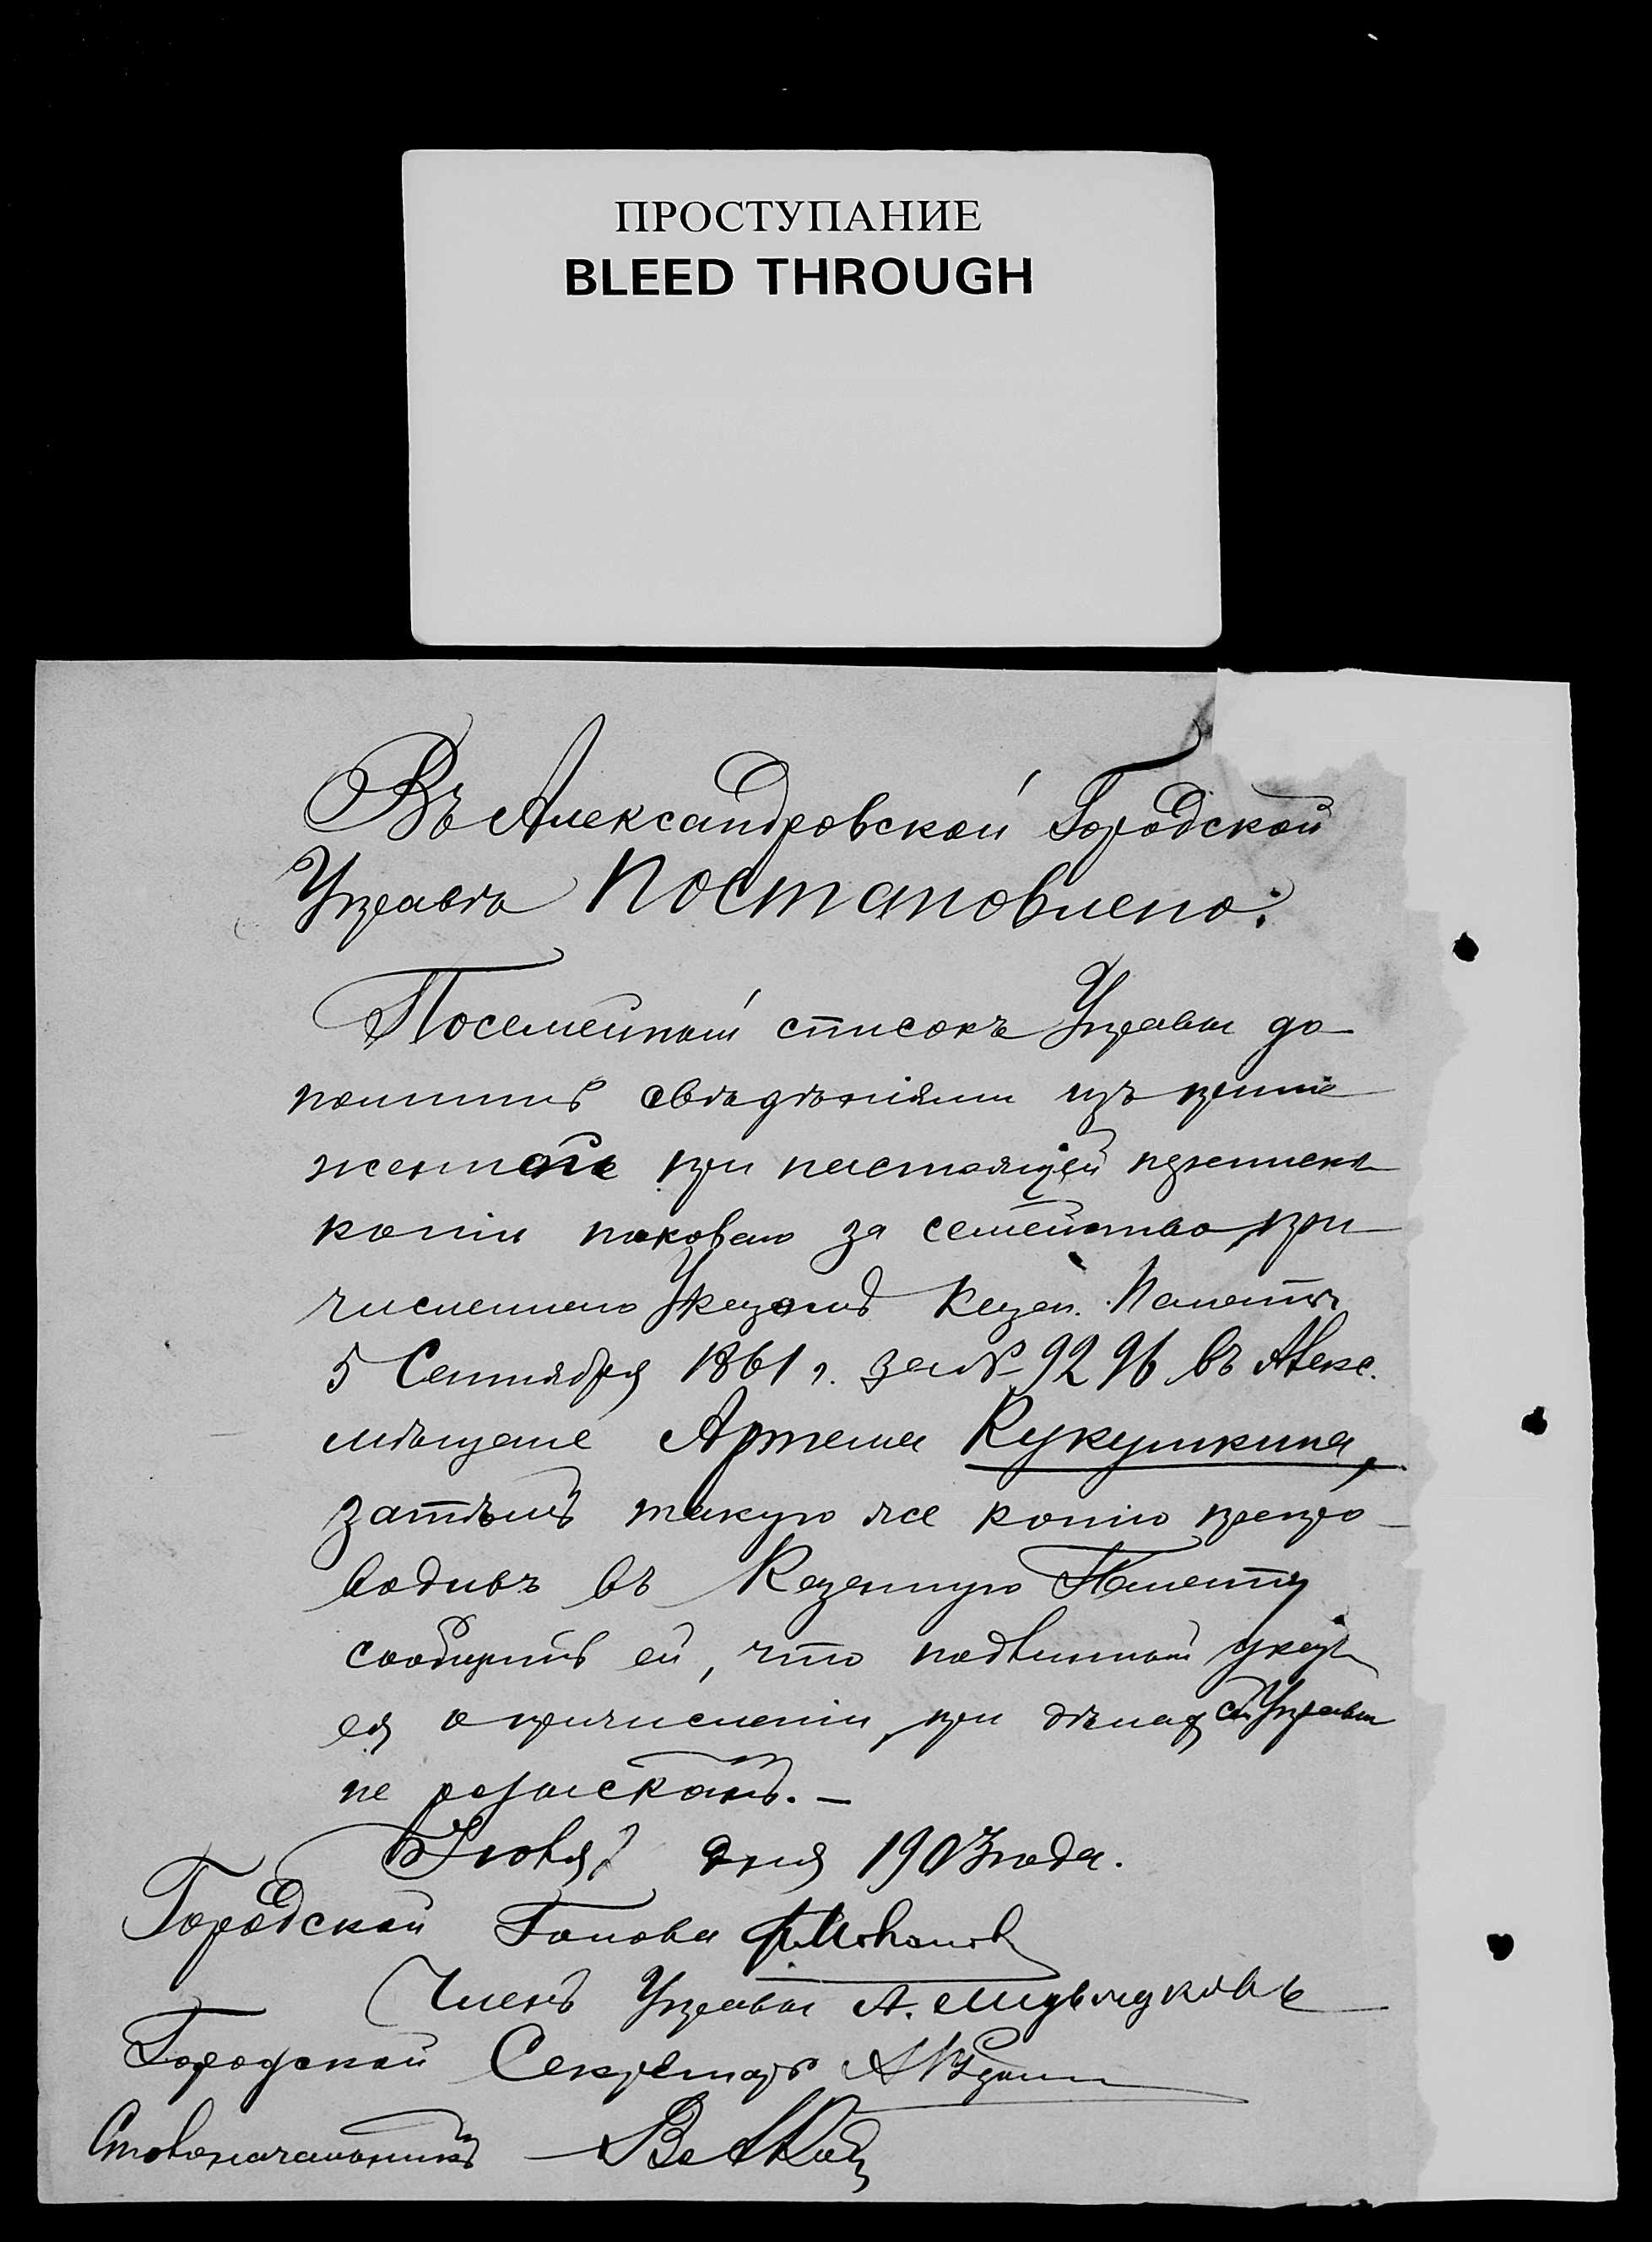 ПРОСТУПАНИЕ
BLEED THROUGH
Въ Александровской Городской
Управѣ Постановлено:
Посемейный списокъ Управы до-
полнить свѣдѣніями изъ прило
женной при настоящей перепискѣ
копіи таковаго за семейство при-
численнаго Указомъ Казен. Палаты
5 Сентября 1861 г. за № 9296 въ Алекс.
мѣщане Артема Кукушкина,
затѣмъ такую же копію препро-
водивъ въ Казенную Палату
сообщить ей, что подлинный указъ
ея о причисленіи при дѣлахъ сей Управы
не розысканъ. —
Іюля дня 1903 года.
Городской Голова
Членъ Управы А.
Городской Секретарь
Столоначальникъ